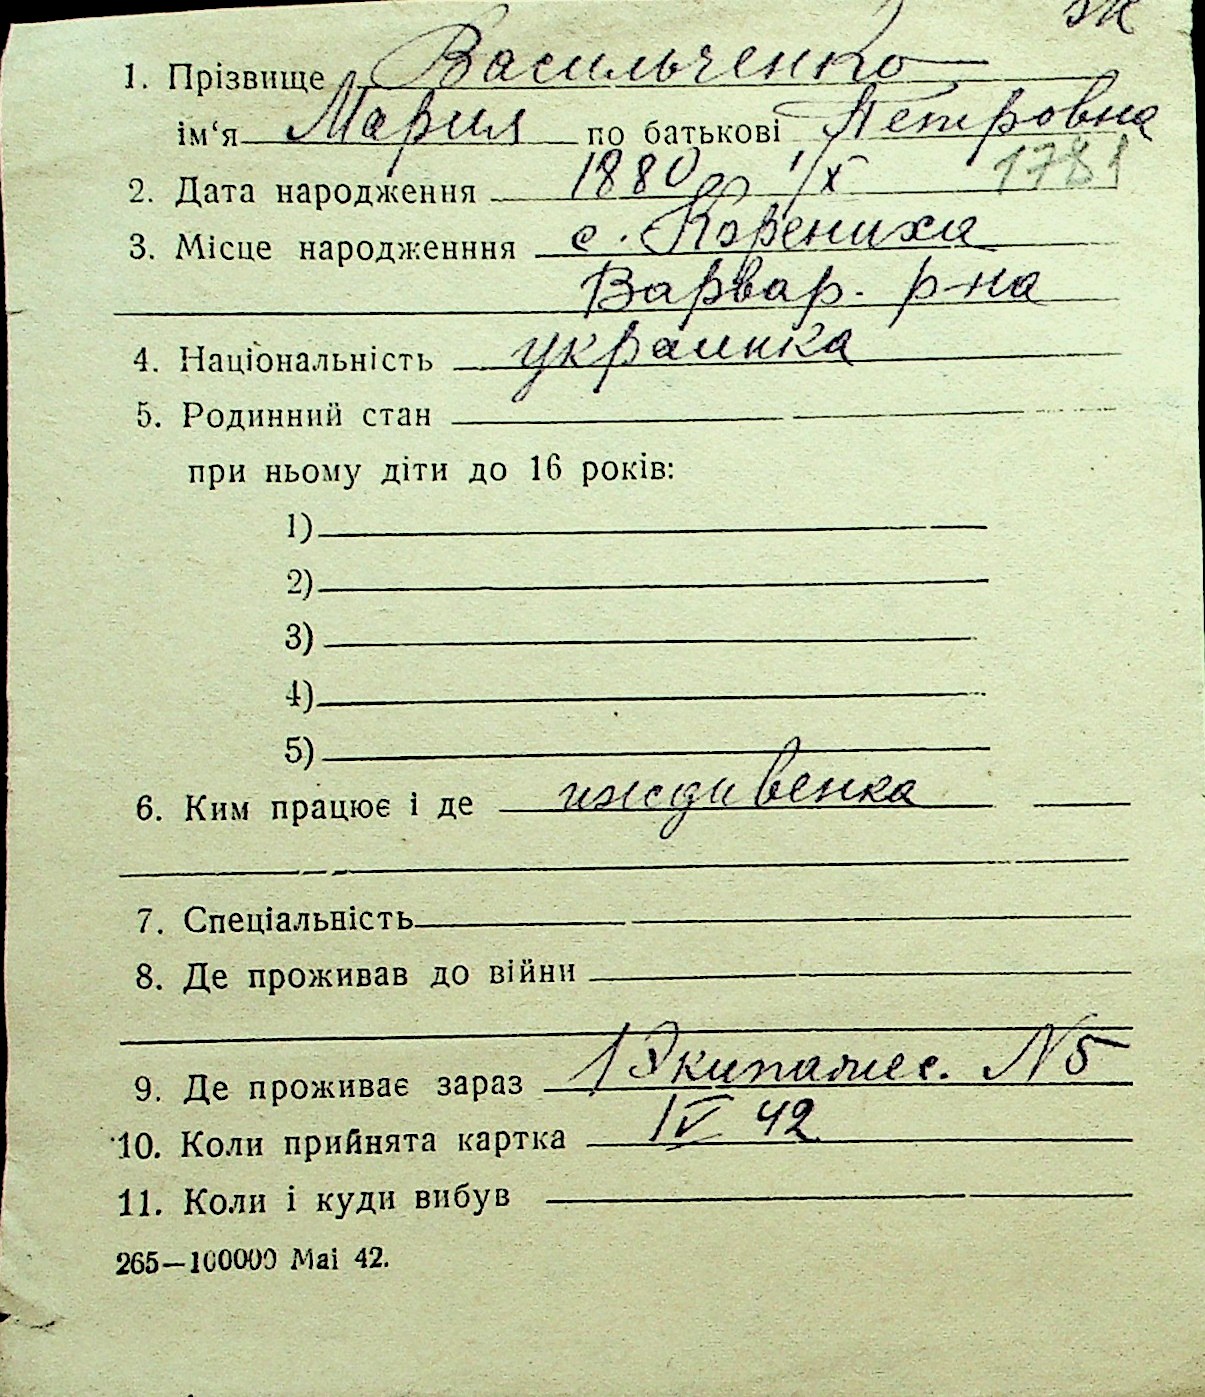 эк
1. Прізвище Васильченко
ім‘я Мария по батькові Петровна
2. Дата народження 1880 г. 1/X 1781
3. Місце народженння с. Корениха
Варвар. р-на
4. Національність украинка
5. Родинний стан
при ньому діти до 16 років:
1)
2)
3)
4)
5)
6. Ким працює і де иждивенка
7. Спеціальність
8. Де проживав до війни
9. Де проживає зараз 1 Экипажес. N 5
10. Коли прийнята картка IV 42
11. Коли і куди вибув
265—100000 Mai 42.